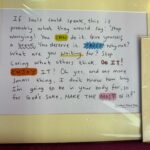 If souls could speak, this is
probably what they would say: Stop
worrying! You CAN do it. Give yourself
a break, you deserve it. DANCE! Why not?
What are you waiting for? Stop
caring what others think. DO IT!
ENJOY IT! Oh yes, and one more
small thing. I don't know for how long
I'm going to be in your body for, so
for God's sake, MAKE THE MOST of it!